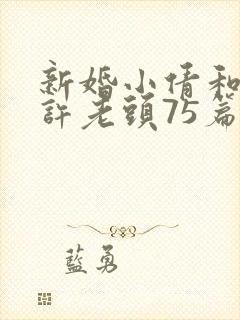 新婚小倩和
許老頭75篇
藍勇